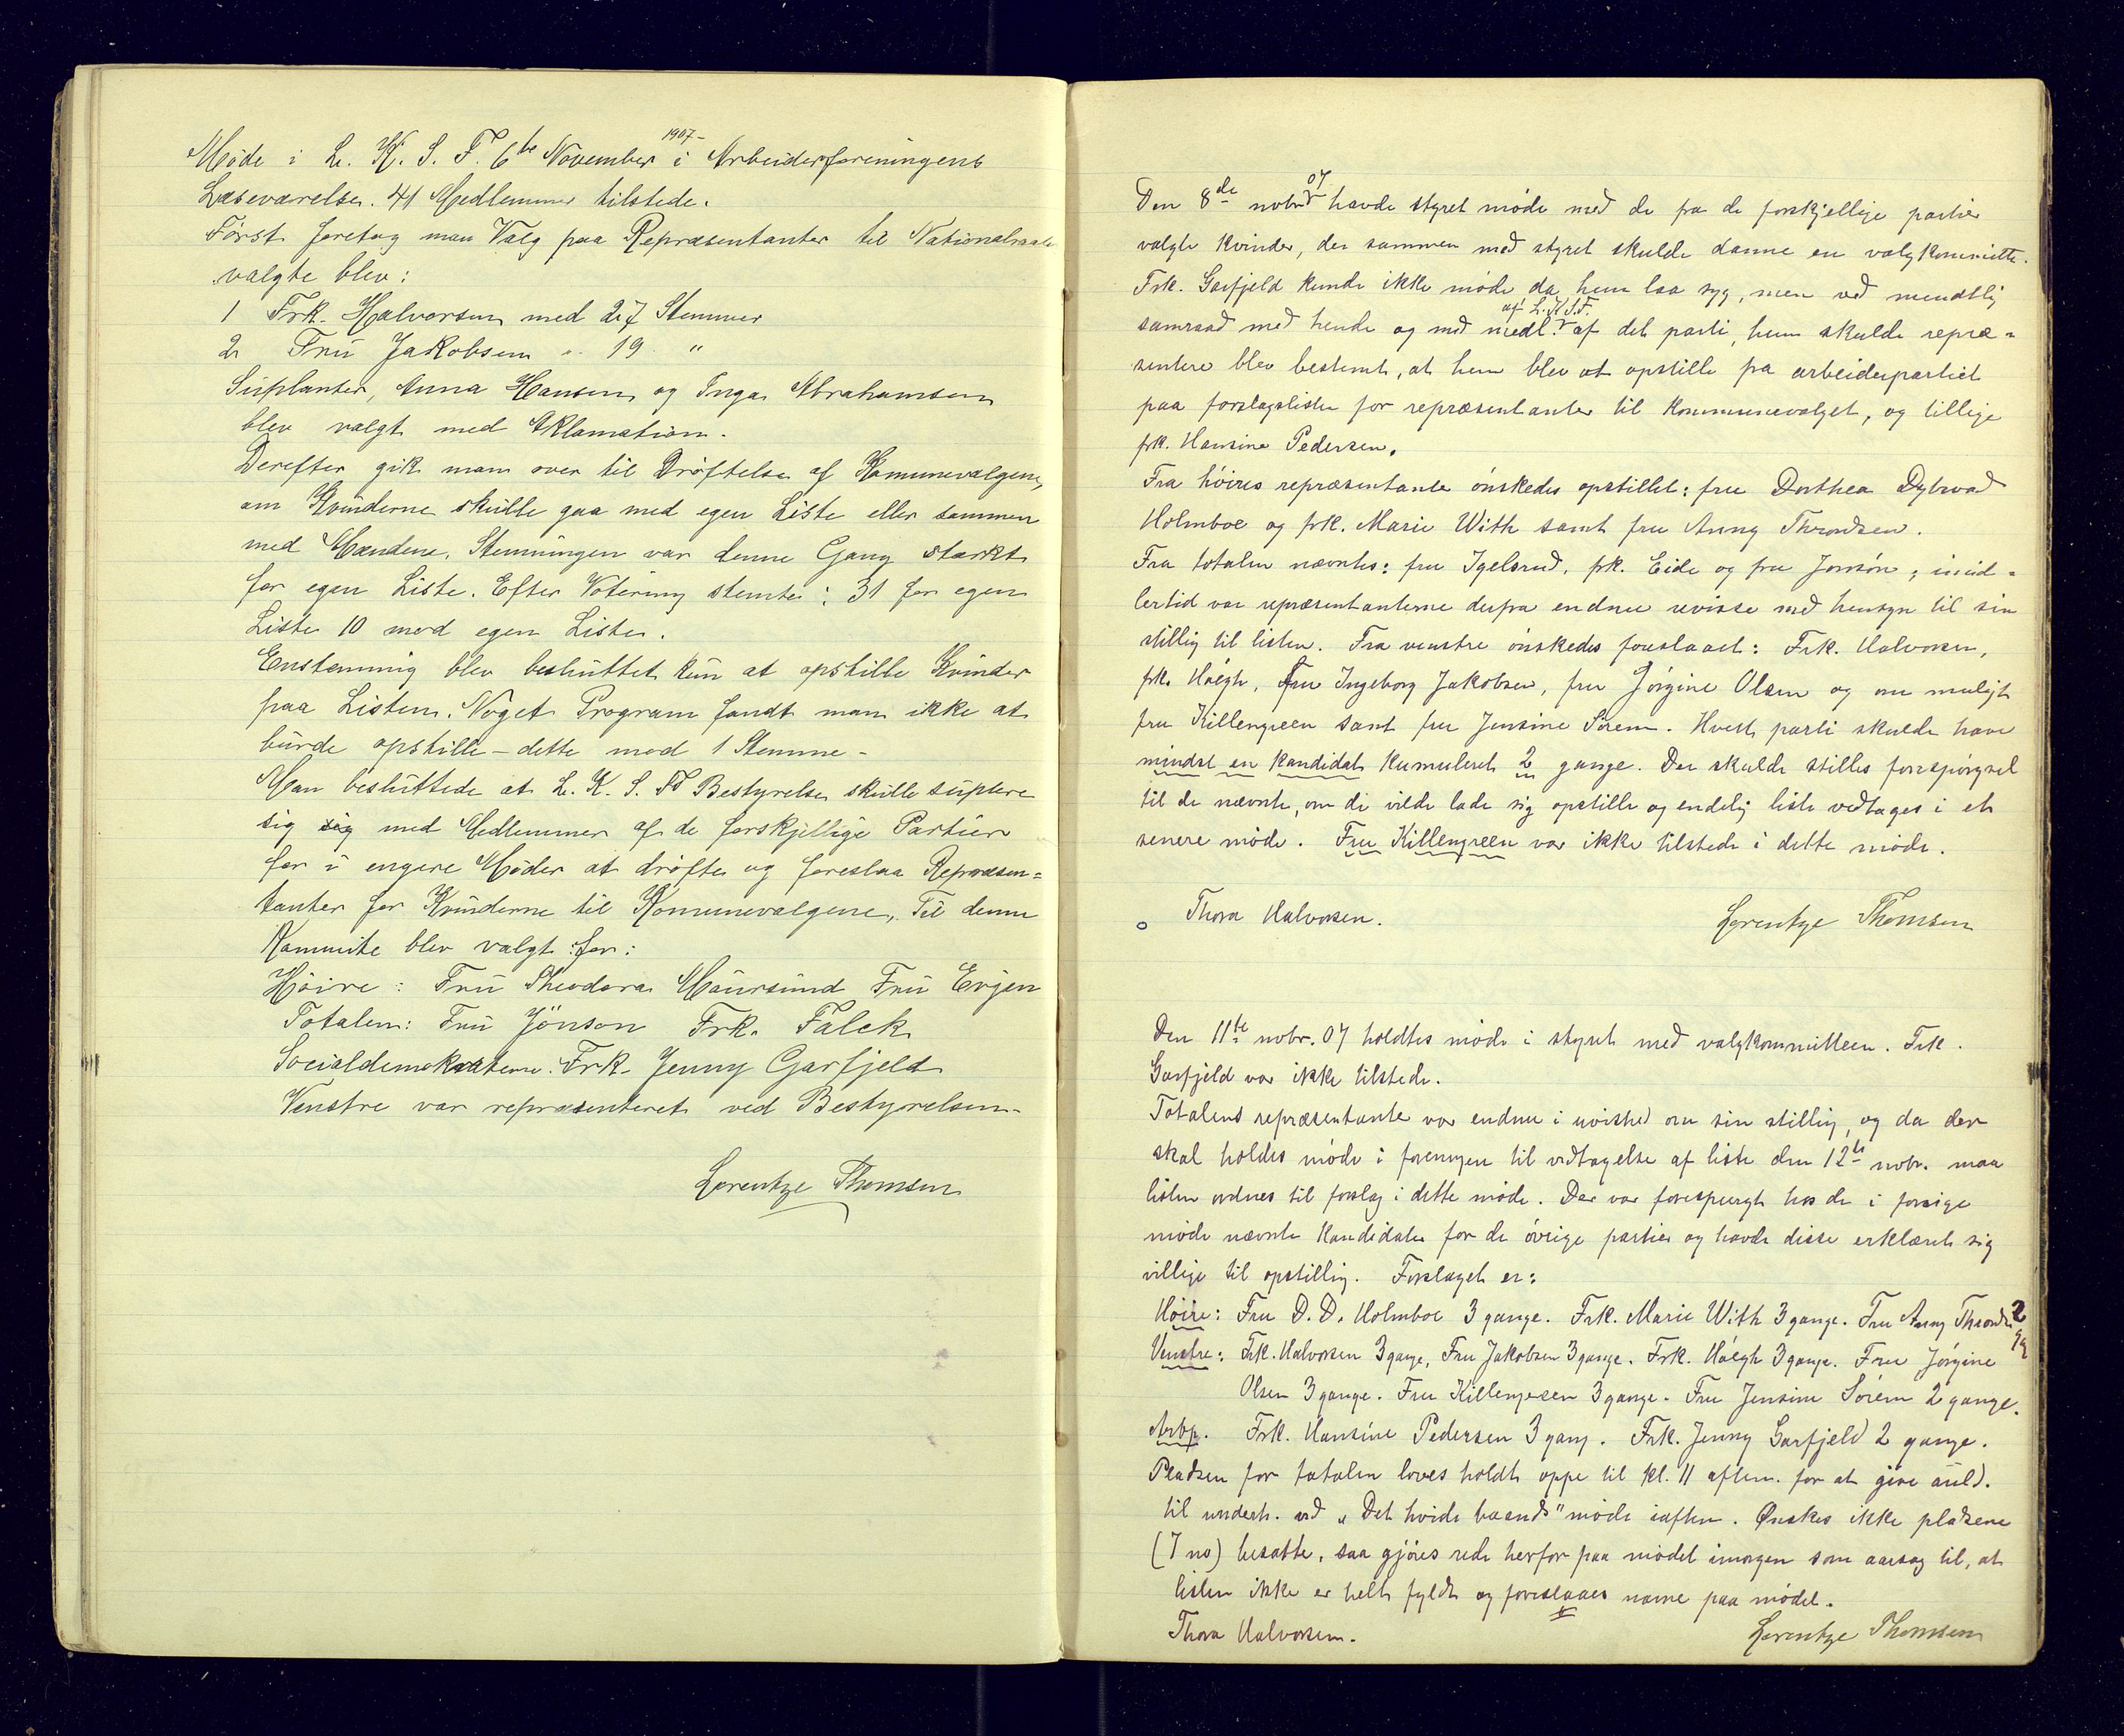 Møde i L. K. S. F. 6te November 1907 i Arbeiderforeningens
Læseværelse. 41 Medlemmer tilstede.
Først foretog man Valg paa Repræsentanter til Nationalraadet
valgte blev:
1 Frk. Halvorsen med 27 Stemmer
2 Fru Jakobsen " 19 "
Suplanter, Anna Hansen og Inga Abrahamsen
blev valgt med Aklamation.
Derefter gik man over til Drøftelse af Komunevalgene,
om Kvinderne skulle gaa med egen Liste eller sammen
med Mændene. Stemningen var denne Gang stærkt
for egen Liste. Efter Votering stemte: 31 for egen
Liste 10 mod egen Liste.
Enstemmig blev besluttet kun at opstille Kvinder
paa Listen. Noget Program fandt man ikke at
burde opstille – dette mod 1 Stemme –
Man besluttede at L. K. S. F's Bestyrelse skulle suplere
sig sig med Medlemmer af de forskjellige Partier
for i engere Møder at drøfte og foreslaa Repræsen=
tanter for Kvinderne til Komunevalgene. Til denne
Kommite blev valgt for:
Høire: Fru Theodora Maursund Fru Evjen
Totalen: Fru Jönson Frk. Falck
Socialdemokraterne: Frk. Jenny Garfjeld
Venstre var repræsenteret ved Bestyrelsen.
Lorentze Thomsen
Den 8de nobr 07 havde styret møde med de fra de forskjellige partier
valgte kvinder, der sammen med styret skulde danne en valgkommitte.
Frk. Garfjeld kunde ikke møde da hun laa syg, men ved mundtlig
samraad med hende og med medl. af L. K. S. F. af det parti, hun skulde repræ=
sentere blev bestemt, at hun blev at opstille fra arbeiderpartiet
paa forslagslisten for repræsentanter til kommunevalget, og tillige
frk. Hansine Pedersen.
Fra høires repræsentanter ønskedes opstillet: fru Dorthea Dybwad
Holmboe og frk. Marie With samt fru Anny Throndsen.
Fra totalen nævntes: fru Igelsrud, frk. Eide og fru Jonsön; imid=
lertid var repræsentanterne derfra endnu uvisse med hensyn til sin
stillig til listen. Fra venstre ønskedes foreslaaet: Frk. Halvorsen,
frk. Høegh, Fru Ingeborg Jakobsen, fru Jørgine Olsen og om muligt
fru Killengreen samt fru Jensine Sørem. Hvert parti skulde have
mindst en kandidat kumuleret 2 gange. Der skulde stilles forespørgsel
til de nævnte, om de vilde lade sig opstille og endelig liste vedtages i et
senere møde. Fru Killengreen var ikke tilstede i dette møde.
Thora Halvorsen. Lorentze Thomsen
Den 11te nobr. 07 holdtes møde i styret med valgkommitteen. Frk.
Garfjeld var ikke tilstede.
Totalens repræsentanter var endnu i uvished om sin stillig, og da der
skal holdes møde i foreningen til vedtagelse af liste den 12te nobr. maa
listen ordnes til forslag i dette møde. Der var forespurgt hos de i forrige
møde nævnte kandidater for de øvrige partier og havde disse erklæret sig
villige til opstillig. Forslaget er:
Høire: Fru D. D. Holmboe 3 gange. Frk. Marie With 3 gange. Fru Anny Throndsen 2 gg
Venstre: Frk. Halvorsen 3 gange, Fru Jakobsen 3 gange. Frk. Høegh 3 gange. Fru Jørgine
Olsen 3 gange. Fru Killengreen 3 gange. Fru Jensine Sørem 2 gange.
Arbp. Frk. Hansine Pedersen 3 gang. Frk. Jenny Garfjeld 2 gange.
Pladsen for totalen loves holdt oppe til kl. 11 aften. for at give anld.
til underh. ved „Det hvide baands" møde iaften. Ønskes ikke pladsene
(7 no) besatte, saa gjøres rede herfor paa mødet imorgen som aarsag til, at
listen ikke er helt fyldt og foreslaaes navne paa mødet.
Thora Halvorsen. Lorentze Thomsen